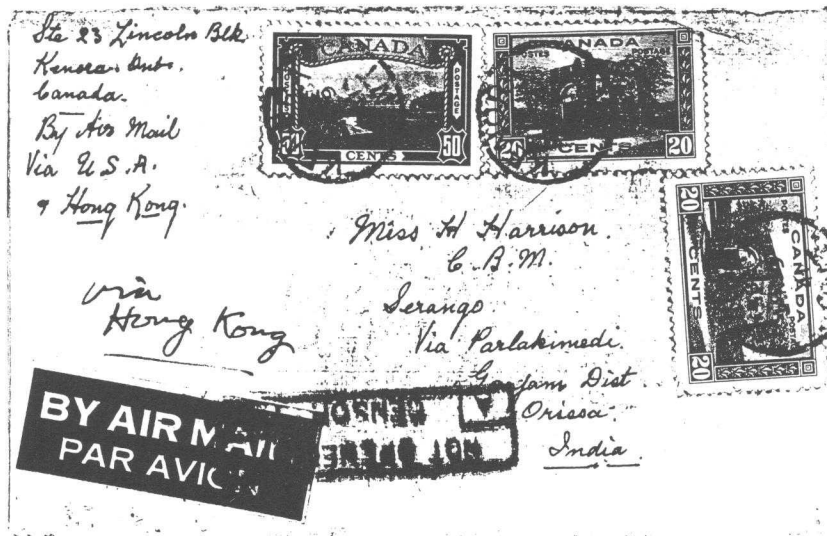 Ste 23 Lincoln Blk
Kenora. Ont.
Canada.
By Air Mail
Via U.S.A.
& Hong Kong.
CANADA
POSTAGE
50 CENTS 50
CANADA
POSTES POSTAGE
20 CENTS 20
CANADA
20 CENTS 20
Miss H Harrison.
C.B.M.
Serango.
Via Parlakimedi.
Ganjam Dist.
Orissa.
India
via
Hong Kong
BY AIR MAIL
PAR AVION
NOT OPENED
CENSOR
A